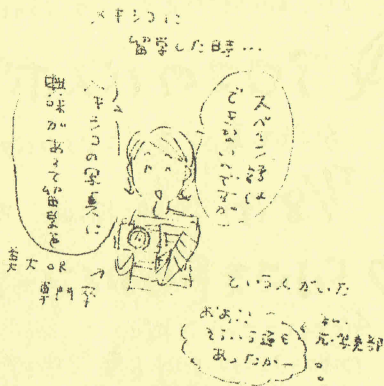 メキシコに
留学した時…
スペイン語は
できないのですが
メキシコの写真に
興味があって留学を
美大OR
専門卒
という人がいた
おお…
そういう道も
あったかー